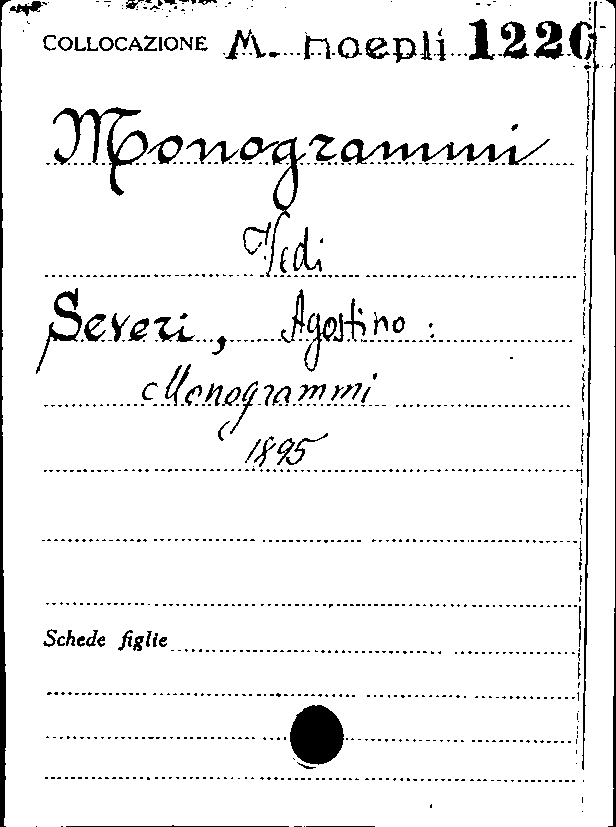 COLLOCAZIONE M. Hoepli 1220
Monogrammi
Vedi
Severi, Agostino:
Monogrammi
1895
Schede figlie